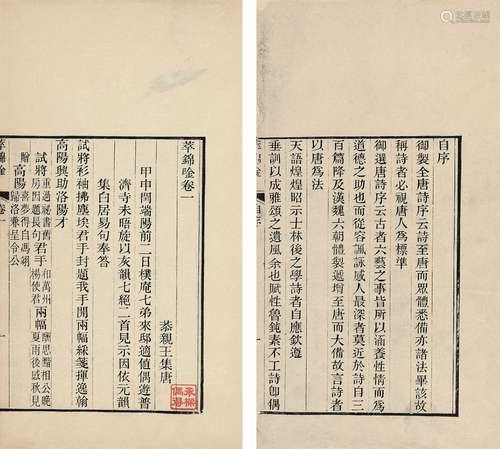 自序
御製全唐詩序云詩至唐而眾體悉備亦諸法畢該故
稱詩者必視唐人為標準
御選唐詩序云古者六藝之事皆所以涵養性情而為
道德之助也而從容諷詠感人最深者莫近於詩自三
百篇降及漢魏六朝體製遞增至唐而大備故言詩者
以唐為法
天語煌煌昭示士林後之學詩者自應欽遵
垂訓以成雅頌之遺風余也賦性魯鈍素不工詩即偶
萃錦唫
自序
萃錦唫卷一
恭親王集唐
甲申閏端陽前二日樸庵七弟來邸適值偶遊普
濟寺未晤旋以灰韻七絕二首見示因依元韻
集白居易句奉答
試將衫袖拂塵埃君手封題我手開兩幅綵箋揮逸翰
高陽興助洛陽才
試將重過祕書舊房因題長句君手和萬州楊使君兩幅酬思黯相公晚夏雨後感秋見
贈高陽喜夢得自馮翊歸洛兼呈令公
萃錦唫
卷一
一